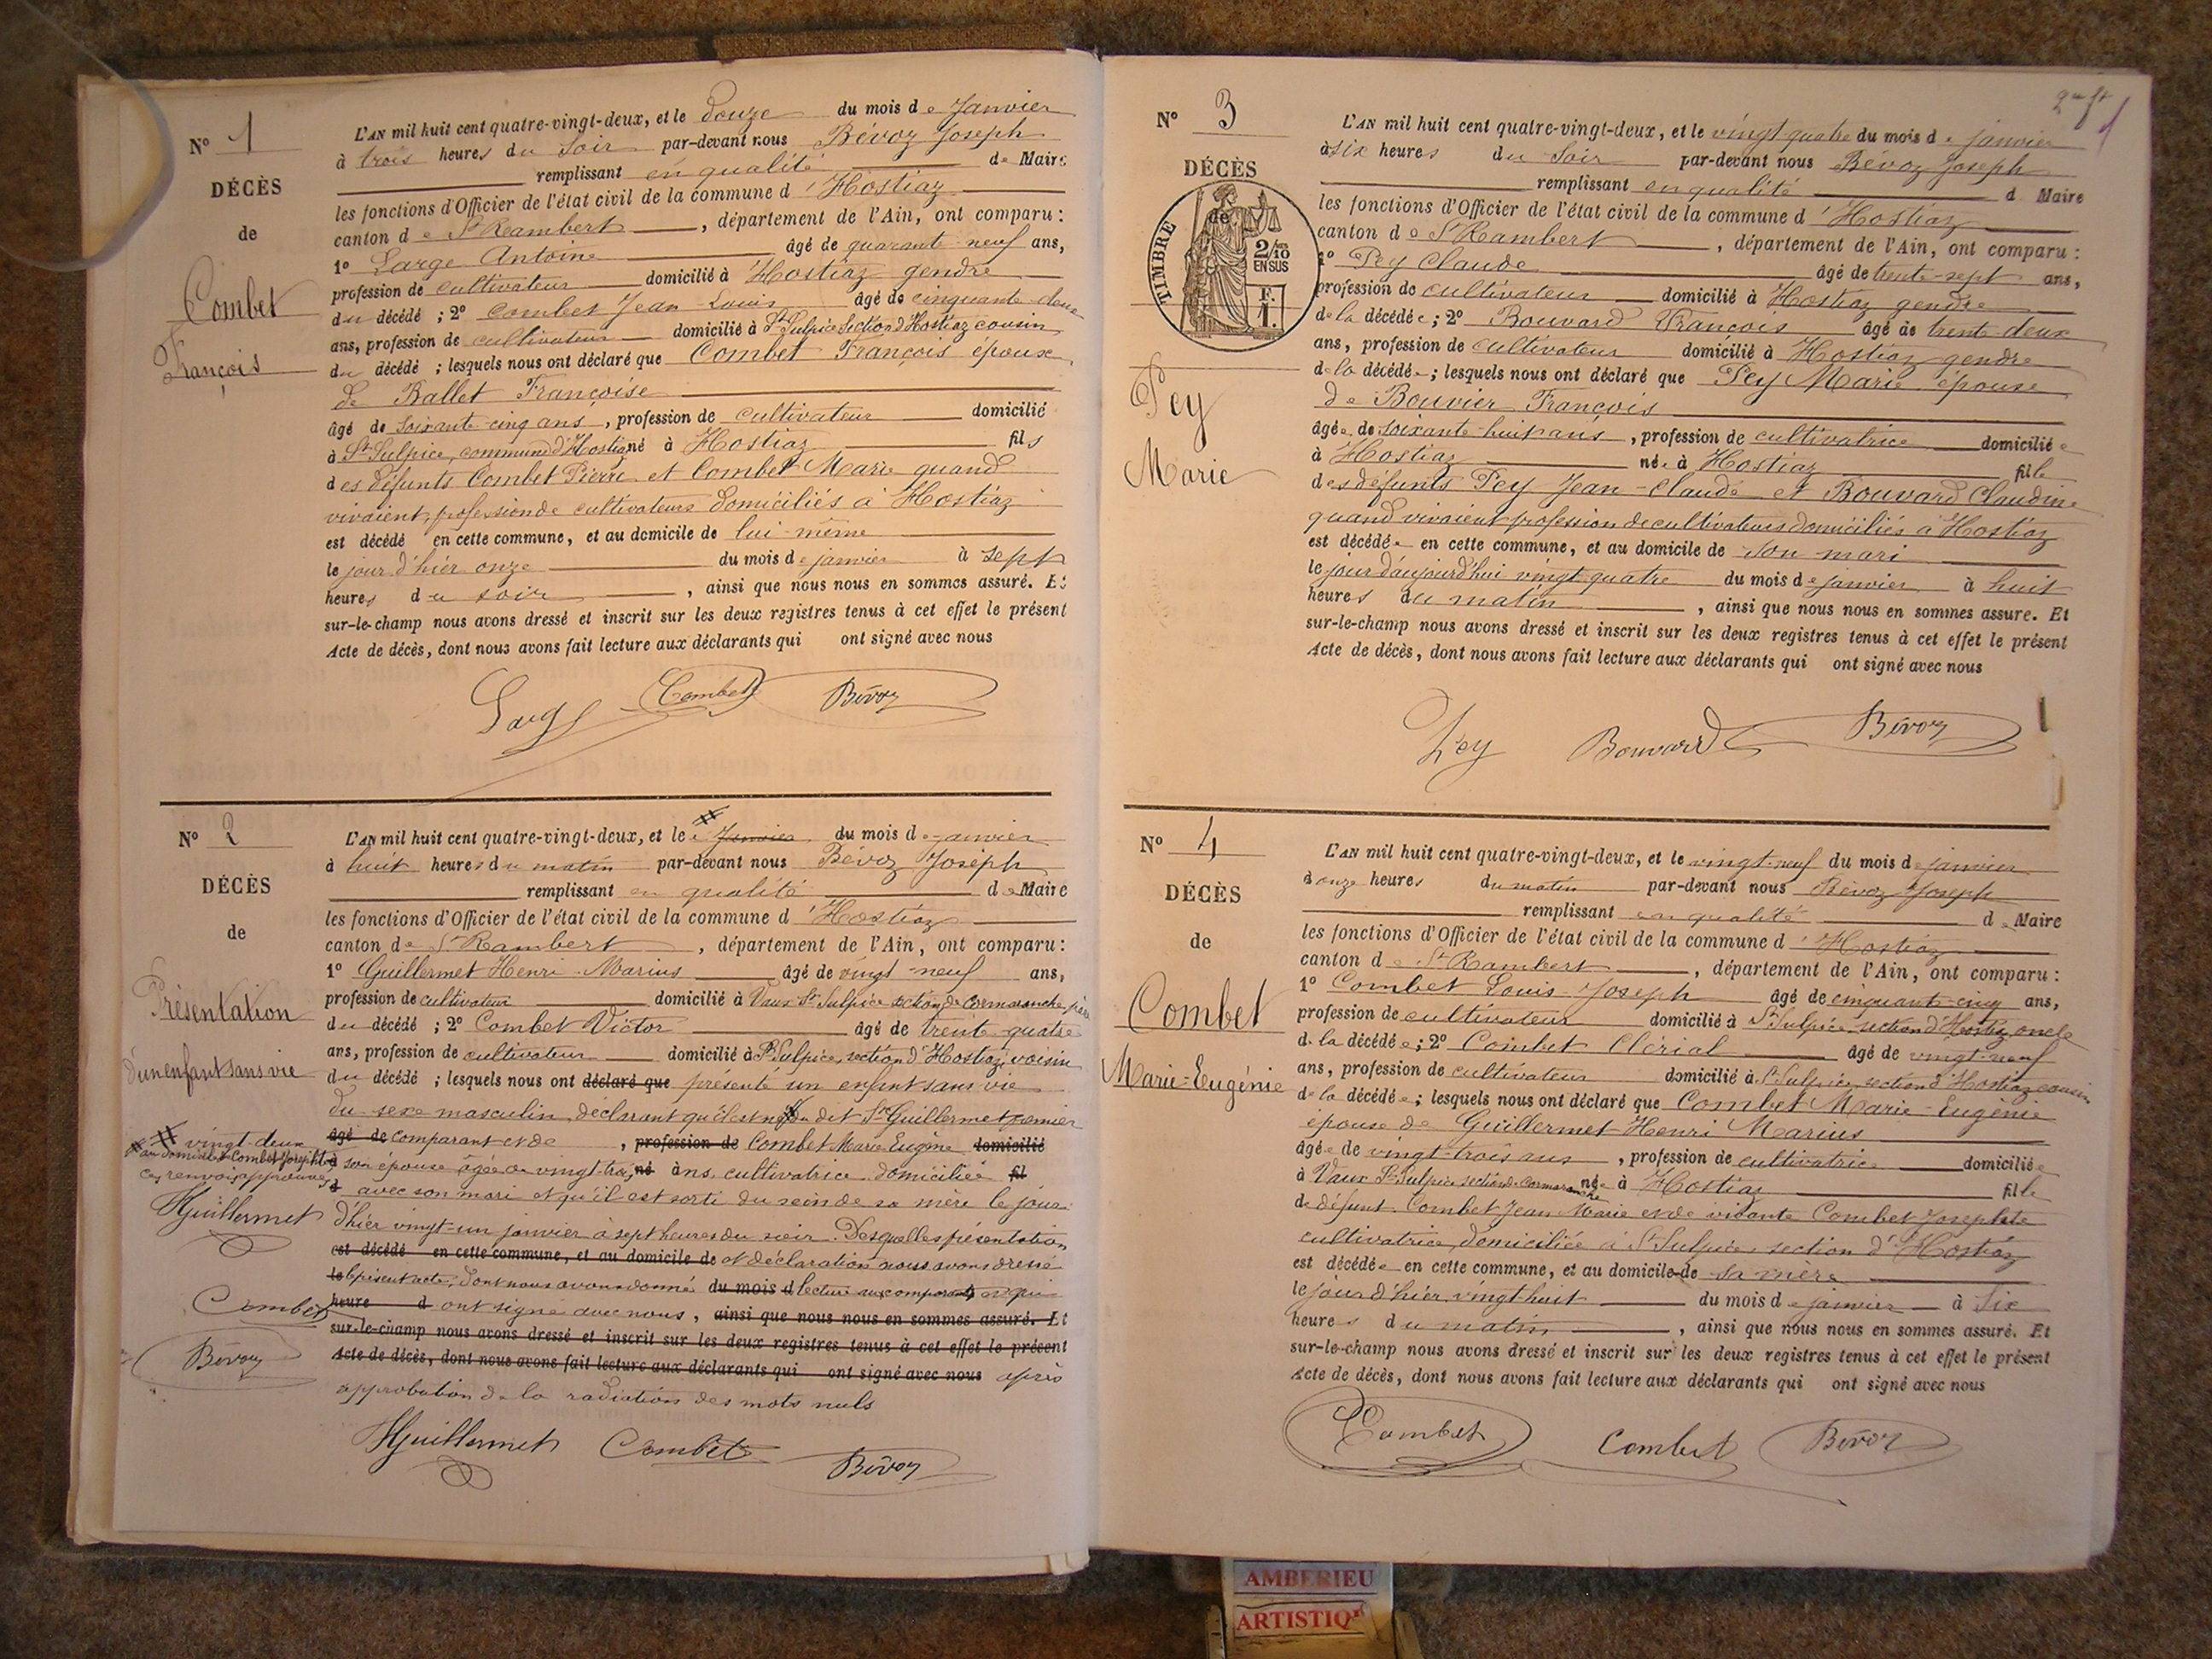 N° 1
DÉCÈS
de
Combet
François
L'AN mil huit cent quatre-vingt-deux, et le douze du mois de Janvier
à trois heures du Soir par-devant nous Bévoz Joseph
remplissant en qualité de Maire
les fonctions d'Officier de l'état civil de la commune d'Hostiaz
canton de St Rambert, département de l'Ain, ont comparu :
1° Large Antoine âgé de quarante neuf ans,
profession de cultivateur domicilié à Hostiaz gendre
du décédé ; 2° Combet Jean Louis âgé de cinquante deux
ans, profession de cultivateur domicilié à St Sulpice Section d'Hostiaz cousin
du décédé ; lesquels nous ont déclaré que Combet François époux
de Ballet Françoise
âgé de soixante cinq ans, profession de cultivateur domicilié
à St Sulpice, commune d'Hostiaz né à Hostiaz fils
des défunts Combet Pierre et Combet Marie quand
vivaient, profession de cultivateurs domiciliés à Hostiaz
est décédé en cette commune, et au domicile de lui-même
le jour d'hier onze du mois de janvier à sept
heures du soir, ainsi que nous nous en sommes assuré. Et
sur-le-champ nous avons dressé et inscrit sur les deux registres tenus à cet effet le présent
Acte de décès, dont nous avons fait lecture aux déclarants qui ont signé avec nous
Large Combet Bévoz
N° 2
DÉCÈS
de
Présentation
d'un enfant sans vie
L'AN mil huit cent quatre-vingt-deux, et le Janvier du mois de janvier
à huit heures du matin par-devant nous Bévoz Joseph
remplissant en qualité de Maire
les fonctions d'Officier de l'état civil de la commune d'Hostiaz
canton de St Rambert, département de l'Ain, ont comparu :
1° Guillermet Henri-Marius âgé de vingt-neuf ans,
profession de cultivateur domicilié à Vaux St Sulpice section de Cormaranche père
du décédé ; 2° Combet Victor âgé de trente quatre
ans, profession de cultivateur domicilié à St Sulpice, section d'Hostiaz voisin
du décédé ; lesquels nous ont déclaré que présenté un enfant sans vie
du sexe masculin, déclarant qu'il est né du dit Sr Guillermet premier
âgé de comparant et de, profession de Combet Marie Eugène domicilié
à son épouse âgée de vingt-trois né ans, cultivatrice domiciliée fil
d avec son mari et qu'il est sorti du sein de sa mère le jour
d'hier vingt-un janvier à sept heures du soir. Desquelles présentation
est décédé en cette commune, et au domicile de et déclaration nous avons dressé
le le présent acte, dont nous avons donné du mois d lecture aux comparants qui
heure d ont signé avec nous, ainsi que nous nous en sommes assuré. Et
sur-le-champ nous avons dressé et inscrit sur les deux registres tenus à cet effet le présent
Acte de décès, dont nous avons fait lecture aux déclarants qui ont signé avec nous après
approbation de la radiation des mots nuls
vingt-deux
au domicile de Combet Josephte
ces renvois approuvés
HGuillermet
Combet
Bévoz
HGuillermet Combet Bévoz
2me ft
N° 3
DÉCÈS
de
TIMBRE
2/10
EN SUS
F.
1.
Pey
Marie
L'AN mil huit cent quatre-vingt-deux, et le vingt quatre du mois de janvier
à six heures du Soir par-devant nous Bévoz Joseph
remplissant en qualité d Maire
les fonctions d'Officier de l'état civil de la commune d'Hostiaz
canton de St Rambert, département de l'Ain, ont comparu :
1° Pey Claude âgé de trente-sept ans,
profession de cultivateur domicilié à Hostiaz gendre
de la décédée ; 2° Bouvard François âgé de trente deux
ans, profession de cultivateur domicilié à Hostiaz gendre
de la décédée ; lesquels nous ont déclaré que Pey Marie épouse
de Bouvier François
âgée de soixante-huit ans, profession de cultivatrice domiciliée
à Hostiaz née à Hostiaz fille
des défunts Pey Jean-Claude et Bouvard Claudine
quand vivaient profession de cultivateurs domiciliés à Hostiaz
est décédée en cette commune, et au domicile de son mari
le jour d'aujourd'hui vingt quatre du mois de janvier à huit
heures du matin, ainsi que nous nous en sommes assuré. Et
sur-le-champ nous avons dressé et inscrit sur les deux registres tenus à cet effet le présent
Acte de décès, dont nous avons fait lecture aux déclarants qui ont signé avec nous
Pey Bouvard Bévoz
N° 4
DÉCÈS
de
Combet
Marie-Eugénie
L'AN mil huit cent quatre-vingt-deux, et le vingt-neuf du mois de janvier
à onze heures du matin par-devant nous Bévoz Joseph
remplissant en qualité de Maire
les fonctions d'Officier de l'état civil de la commune d'Hostiaz
canton de St Rambert, département de l'Ain, ont comparu :
1° Combet Louis-Joseph âgé de cinquante-cinq ans,
profession de cultivateur domicilié à St Sulpice section d'Hostiaz oncle
de la décédée ; 2° Combet Clérial âgé de vingt-neuf
ans, profession de cultivateur domicilié à St Sulpice, section d'Hostiaz cousin
de la décédée ; lesquels nous ont déclaré que Combet Marie-Eugénie
épouse de Guillermet Henri Marius
âgée de vingt-trois ans, profession de cultivatrice domiciliée
à Vaux St Sulpice section de Cormaranche née à Hostiaz fille
de défunt Combet Jean Marie et de vivante Combet Josephte
cultivatrice, domiciliée à St Sulpice, section d'Hostiaz
est décédée en cette commune, et au domicile de sa mère
le jour d'hier, vingt-huit du mois de janvier à Six
heures du matin, ainsi que nous nous en sommes assuré. Et
sur-le-champ nous avons dressé et inscrit sur les deux registres tenus à cet effet le présent
Acte de décès, dont nous avons fait lecture aux déclarants qui ont signé avec nous
Combet Combet Bévoz
AMBERIEU
ARTISTIQ